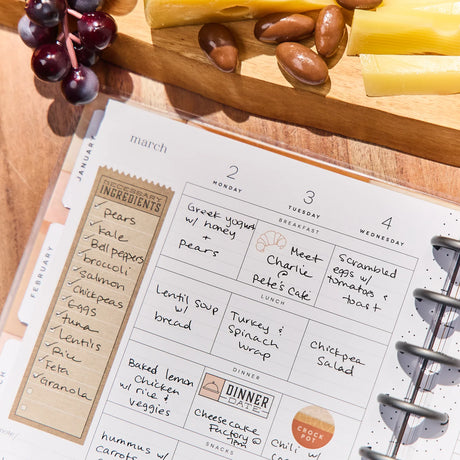 march
JANUARY
FEBRUARY
NECESSARY
INGREDIENTS
pears
kale
Bell peppers
broccoli
salmon
chickpeas
eggs
tuna
lentils
rice
feta
granola
2
MONDAY
3
TUESDAY
4
WEDNESDAY
BREAKFAST
Greek yogurt
w/ honey
+
pears
Meet
Charlie
@
Pete's Cafe
Scrambled
eggs w/
tomatoes &
toast
LUNCH
Lentil soup
w/
bread
Turkey &
Spinach
wrap
Chickpea
Salad
DINNER
Baked lemon
Chicken
w/ rice &
veggies
DINNER
DATE
Cheesecake
Factory @
7pm
Chili w/
CROCK
POT
SNACKS
hummus w/
Carrots